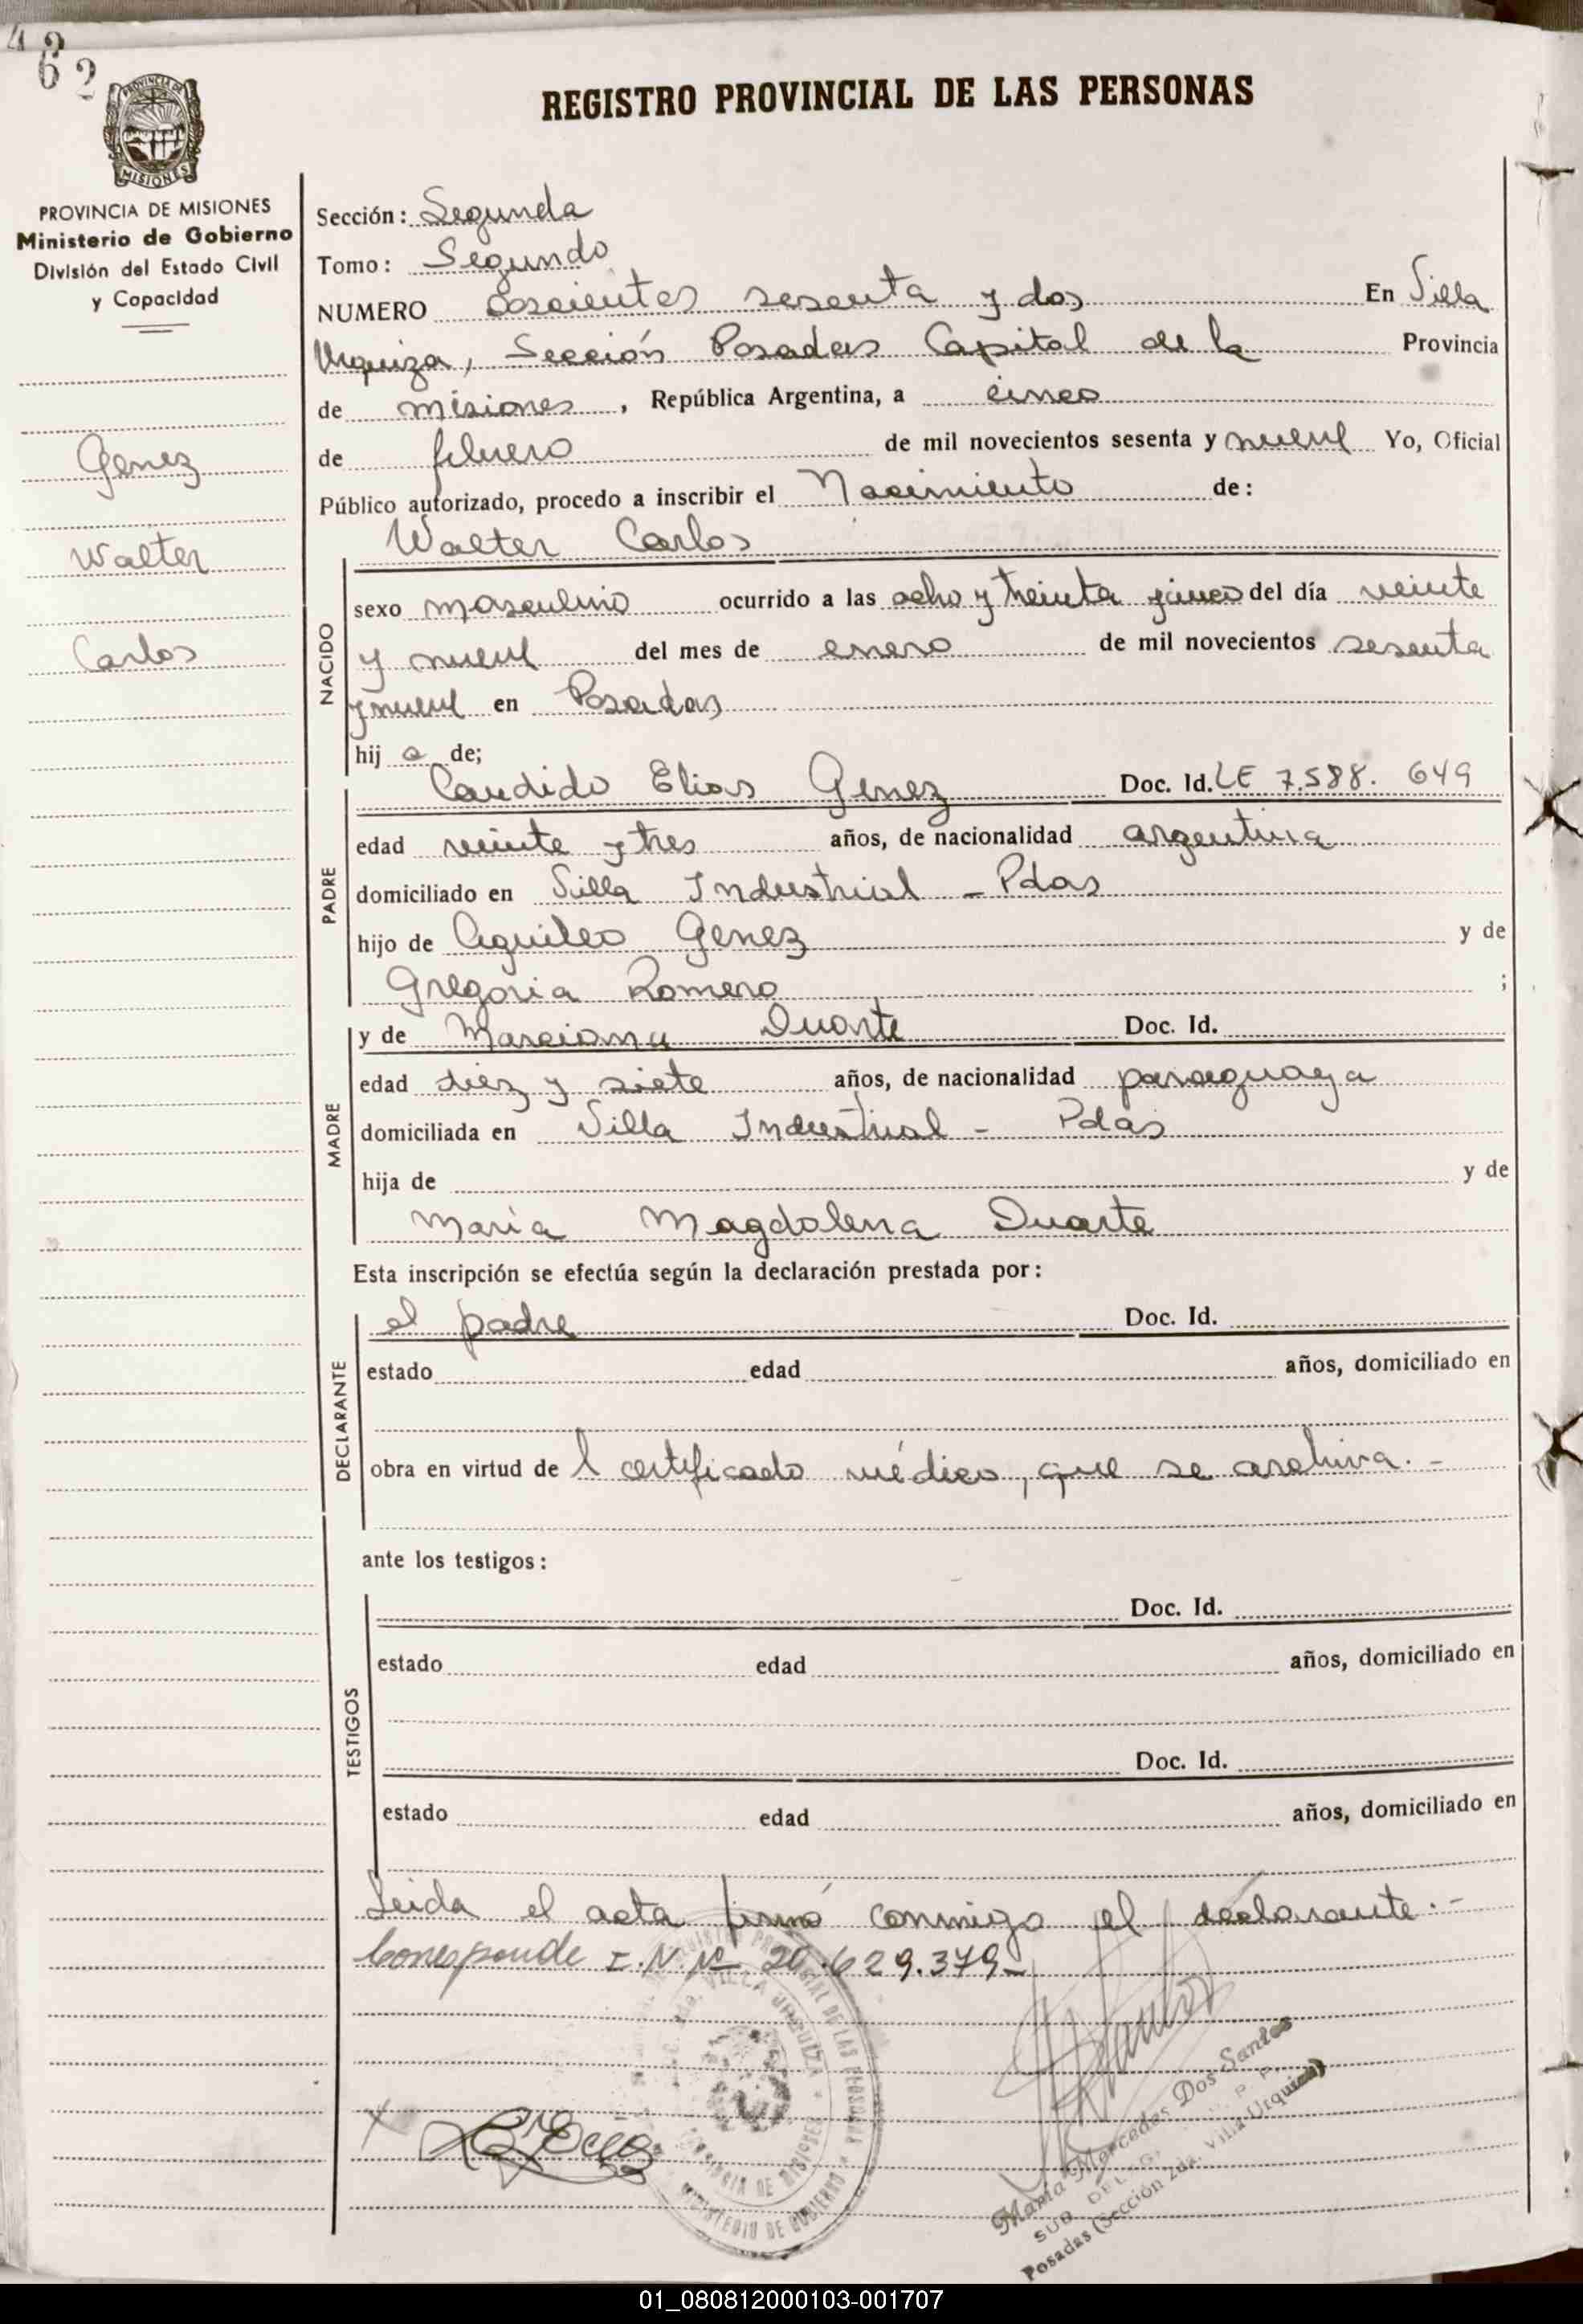 462
REGISTRO PROVINCIAL DE LAS PERSONAS
MISIONES
PROVINCIA DE MISIONES
Ministerio de Gobierno
División del Estado Civil
y Capacidad
Genez
Walter
Carlos
Sección: Segunda
Tomo: Segundo
NUMERO Doscientos sesenta y dos En Villa
Urquiza, Sección Posadas Capital de la Provincia
de misiones, República Argentina, a cinco
de febrero de mil novecientos sesenta y nueve Yo, Oficial
Público autorizado, procedo a inscribir el Nacimiento de:
Walter Carlos
NACIDO
sexo masculino ocurrido a las ocho y treinta y cinco del día veinte
y nueve del mes de enero de mil novecientos sesenta
y nueve en Posadas
hijo de;
PADRE
Candido Elias Genez Doc. Id. LE 7.588.649
edad veinte y tres años, de nacionalidad argentina
domiciliado en Villa Industrial - Pdas
hijo de Aquileo Genez y de
Gregoria Romero ;
MADRE
y de Marciana Duarte Doc. Id.
edad diez y siete años, de nacionalidad paraguaya
domiciliada en Villa Industrial - Pdas
hija de y de
María Magdalena Duarte
Esta inscripción se efectúa según la declaración prestada por:
DECLARANTE
el padre Doc. Id.
estado edad años, domiciliado en
obra en virtud del certificado médico, que se archiva.-
ante los testigos:
TESTIGOS
Doc. Id.
estado edad años, domiciliado en
Doc. Id.
estado edad años, domiciliado en
Leida el acta firmó conmigo el declarante.-
Corresponde I.N.Nº 20.629.379-
REGISTRO PROVINCIAL DE LAS PERSONAS
VILLA URQUIZA
PROVINCIA DE MISIONES
MINISTERIO DE GOBIERNO
María Mercedes Dos Santos
SUB DELEG.
Posadas (Sección 2da. Villa Urquiza)
01_080812000103-001707